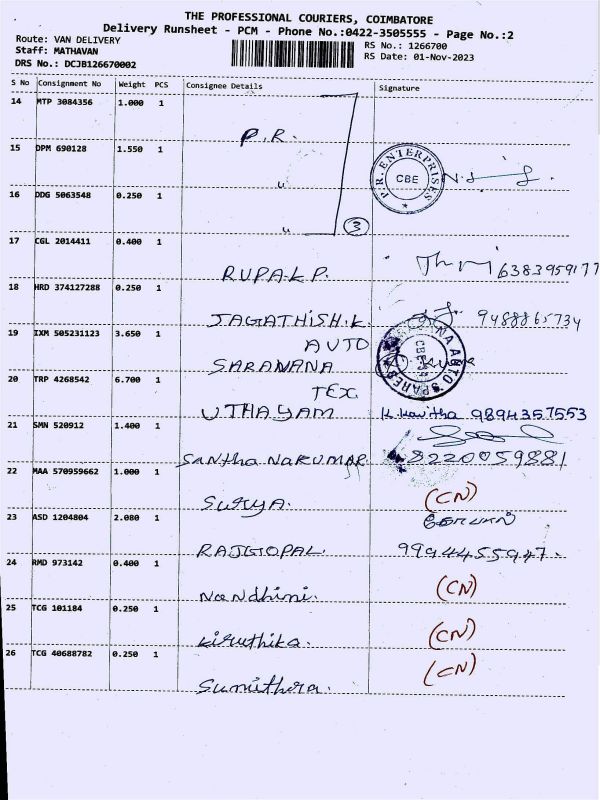 THE PROFESSIONAL COURIERS, COIMBATORE
Delivery Runsheet - PCM - Phone No.:0422-3505555 - Page No.:2
Route: VAN DELIVERY
RS No.: 1266700
Staff: MATHAVAN
RS Date: 01-Nov-2023
DRS No.: DCJB126670002
S No Consignment No Weight PCS Consignee Details Signature
14 MTP 3084356 1.000 1
P.R.
15 DPM 690128 1.550 1
P.R. ENTERPRISES
CBE
"
16 DDG 5063548 0.250 1
"
3
17 CGL 2014411 0.400 1
RUPAK.P. 6383959177
18 HRD 374127288 0.250 1
JAGATHISH.K 9488865734
19 IXM 505231123 3.650 1
AUTO
SARANANA
AUTO SPARES
20 TRP 4268542 6.700 1
TEX
UTHAYAM K. Kavitha 9894357553
21 SMN 520912 1.400 1
Santha NaKUMAR 8220059881
22 MAA 570959662 1.000 1
Surya. (CN)
23 ASD 1204804 2.080 1
RAJGOPAL. 9994455947.
24 RMD 973142 0.400 1
Nandhini. (CN)
25 TCG 101184 0.250 1
Kiruthika. (CN)
26 TCG 40688782 0.250 1
Sumithira. (CN)